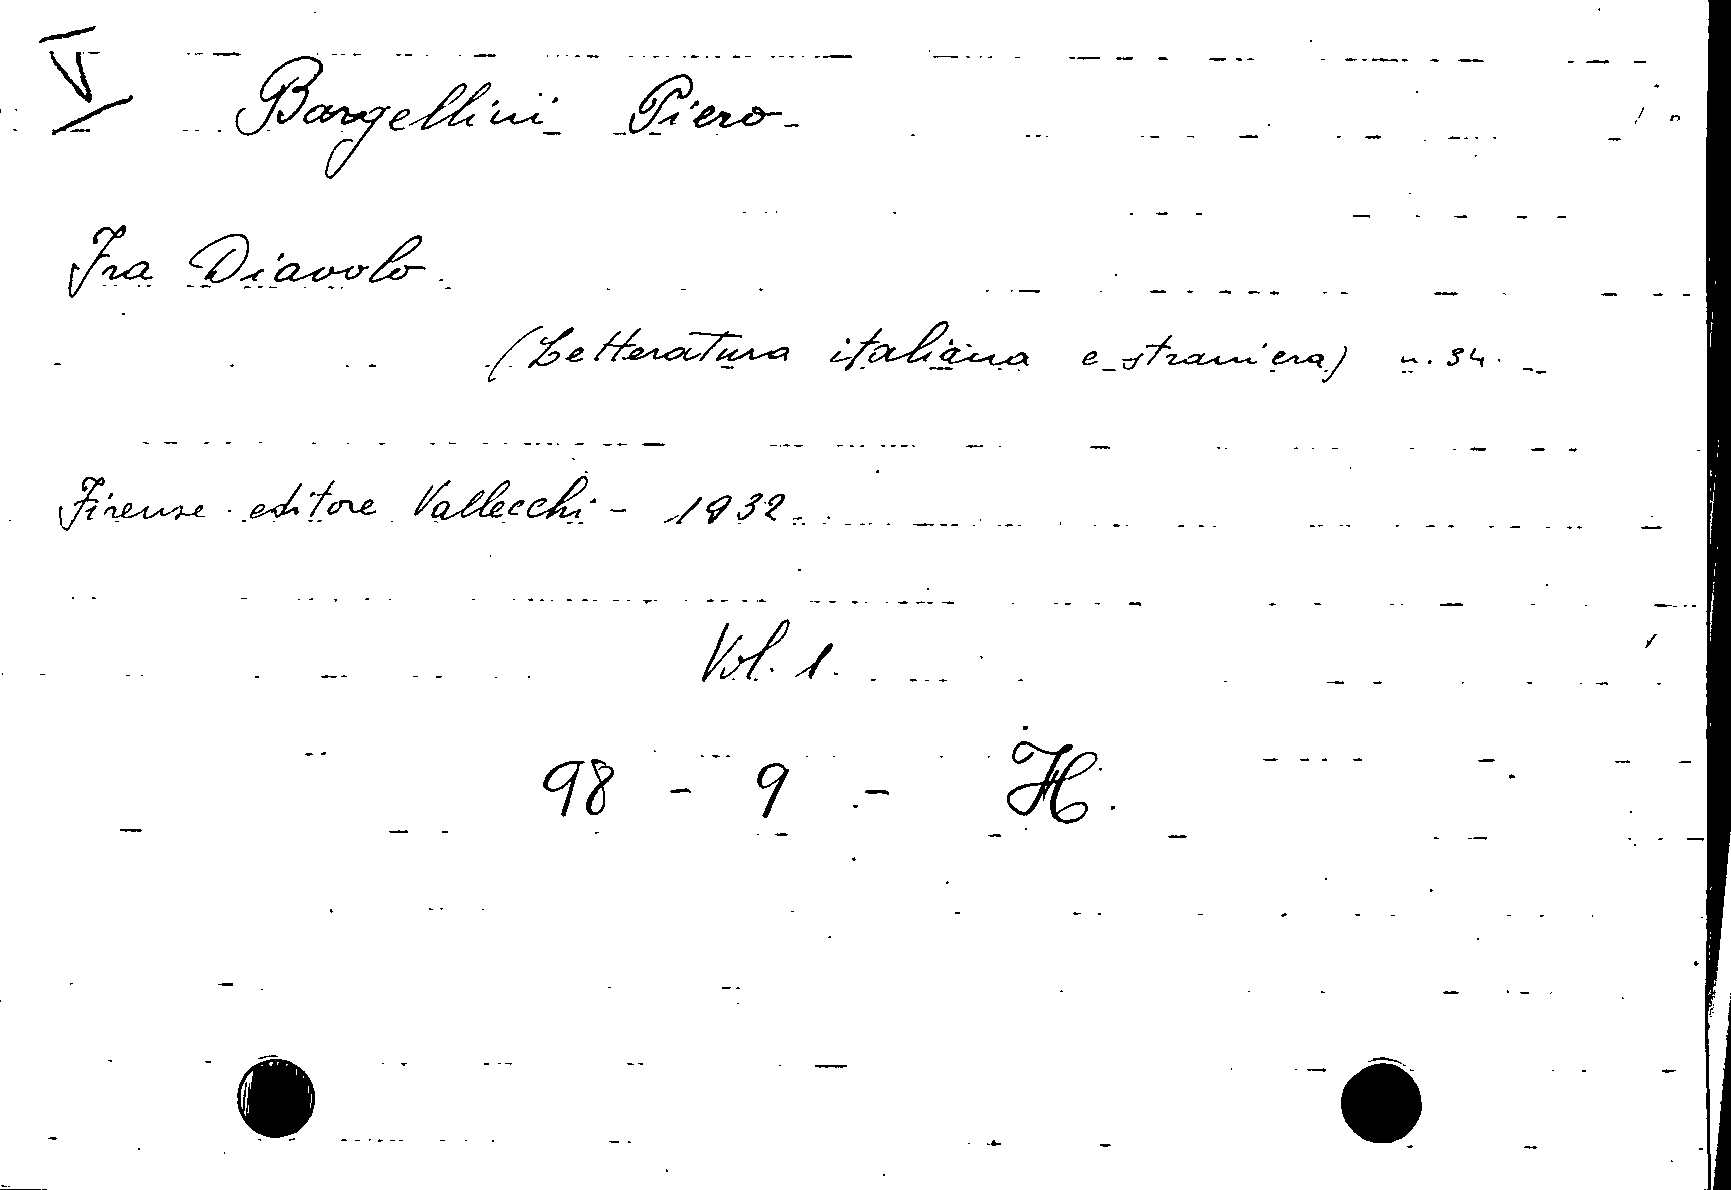 V
Bargellini Piero
Fra Diavolo
(Letteratura italiana e straniera) n. 34.
Firenze editore Vallecchi - 1932
Vol. 1.
98 - 9 - H.